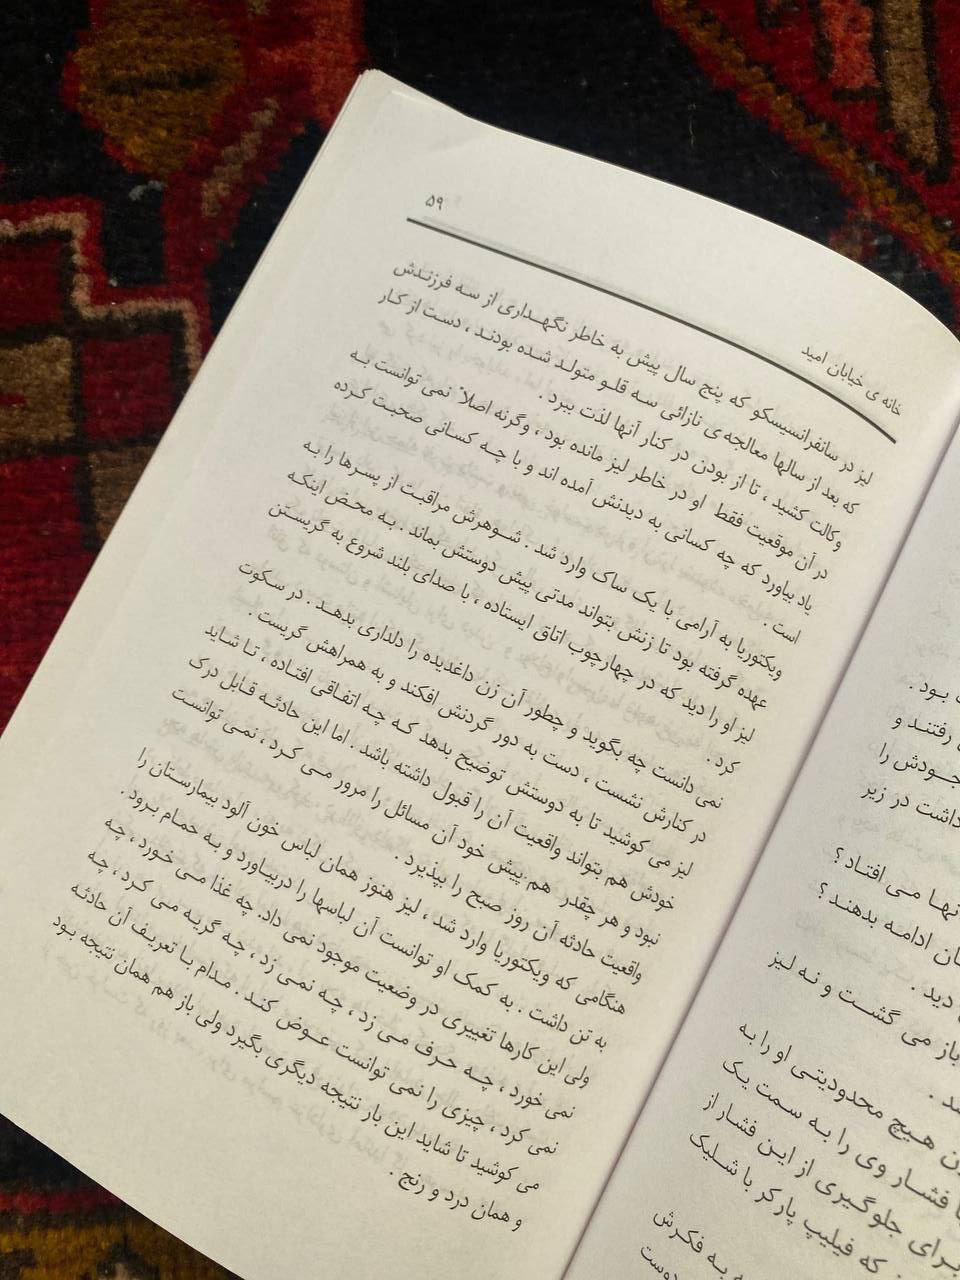 ۵۹
خانه ی خیابان امید
لیز در سانفرانسیسکو که پنج سال پیش به خاطر نگهداری از سه فرزندش
که بعد از سالها معالجه ی نازائی سه قلو متولد شده بودند ، دست از کار
وکالت کشید ، تا از بودن در کنار آنها لذت ببرد .
در آن موقعیت فقط او در خاطر لیز مانده بود ، وگرنه اصلاً نمی توانست به
یاد بیاورد که چه کسانی به دیدنش آمده اند و با چه کسانی صحبت کرده
است .
ویکتوریا به آرامی با یک ساک وارد شد . شوهرش مراقبت از پسرها را به
عهده گرفته بود تا زنش بتواند مدتی پیش دوستش بماند . به محض اینکه
لیز او را دید که در چهارچوب اتاق ایستاده ، با صدای بلند شروع به گریستن
کرد .
نمی دانست چه بگوید و چطور آن زن داغدیده را دلداری بدهد . در سکوت
در کنارش نشست ، دست به دور گردنش افکند و به همراهش گریست .
لیز می کوشید تا به دوستش توضیح بدهد که چه اتفاقی افتاده ، تا شاید
خودش هم بتواند واقعیت آن را قبول داشته باشد . اما این حادثه قابل درک
نبود و هر چقدر هم پیش خود آن مسائل را مرور می کرد ، نمی توانست
واقعیت حادثه آن روز صبح را بپذیرد .
هنگامی که ویکتوریا وارد شد ، لیز هنوز همان لباس خون آلود بیمارستان را
به تن داشت . به کمک او توانست آن لباسها را دربیاورد و به حمام برود .
ولی این کارها تغییری در وضعیت موجود نمی داد. چه غذا می خورد ، چه
نمی خورد ، چه حرف می زد ، چه نمی زد ، چه گریه می کرد ، چه
نمی کرد ، چیزی را نمی توانست عوض کند . مدام با تعریف آن حادثه
می کوشید تا شاید این بار نتیجه دیگری بگیرد ولی باز هم همان نتیجه بود
و همان درد و رنج .
بود .
رفتند و
خودش را
داشت در زیر
می افتاد ؟
ادامه بدهند ؟
دید .
باز می گشت و نه لیز
هیچ محدودیتی او را به
فشار وی را به سمت یک
برای جلوگیری از این فشار از
که فیلیپ پارکر با شلیک
به فکرش
دوست